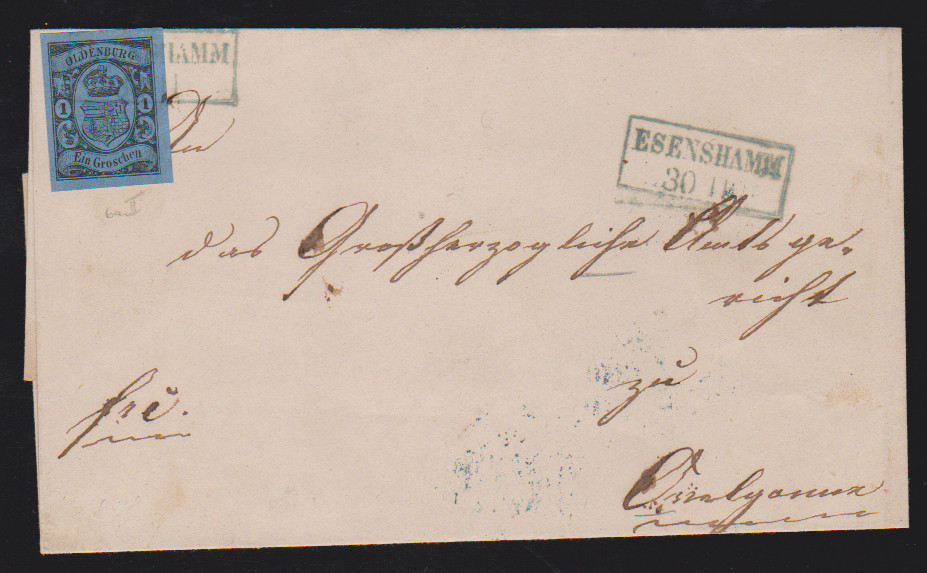 OLDENBURG
1 1
Ein Groschen
HAMM
ESENSHAMM
30
An
das Großherzogliche Amtsge-
richt
zu
frc.
Ovelgönne